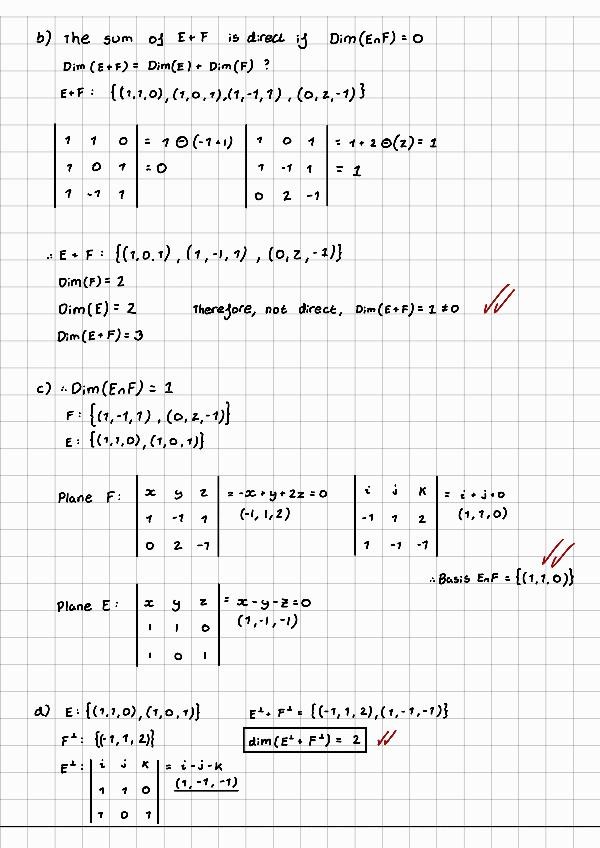 b) The sum of E+F is direct if Dim(E∩F) = 0
Dim(E+F) = Dim(E) + Dim(F) ?
E+F : {(1,1,0), (1,0,1), (1,-1,1), (0,2,-1)}
| 1 1 0 | = 1 ⊖ (-1+1) | 1 0 1 | = 1+2 ⊖ (2) = 1
| 1 0 1 | = 0 | 1 -1 1 | = 1
| 1 -1 1 | | 0 2 -1 |
∴ E + F : {(1,0,1), (1,-1,1), (0,2,-1)}
Dim(F) = 2
Dim(E) = 2 Therefore, not direct, Dim(E+F) = 1 ≠ 0
Dim(E+F) = 3
c) ∴ Dim(E∩F) = 1
F : {(1,-1,1), (0,2,-1)}
E : {(1,1,0), (1,0,1)}
Plane F : | x y z | = -x+y+2z=0 | i j k | = i+j+0
| 1 -1 1 | (-1,1,2) | -1 1 2 | (1,1,0)
| 0 2 -1 | | 1 -1 -1 |
∴ Basis E∩F = {(1,1,0)}
Plane E : | x y z | = x-y-z=0
| 1 1 0 | (1,-1,-1)
| 1 0 1 |
d) E : {(1,1,0), (1,0,1)} E⊥ + F⊥ = {(-1,1,2), (1,-1,-1)}
F⊥ : {(-1,1,2)} dim(E⊥ + F⊥) = 2
E⊥ : | i j k | = i-j-k
| 1 1 0 | (1,-1,-1)
| 1 0 1 |